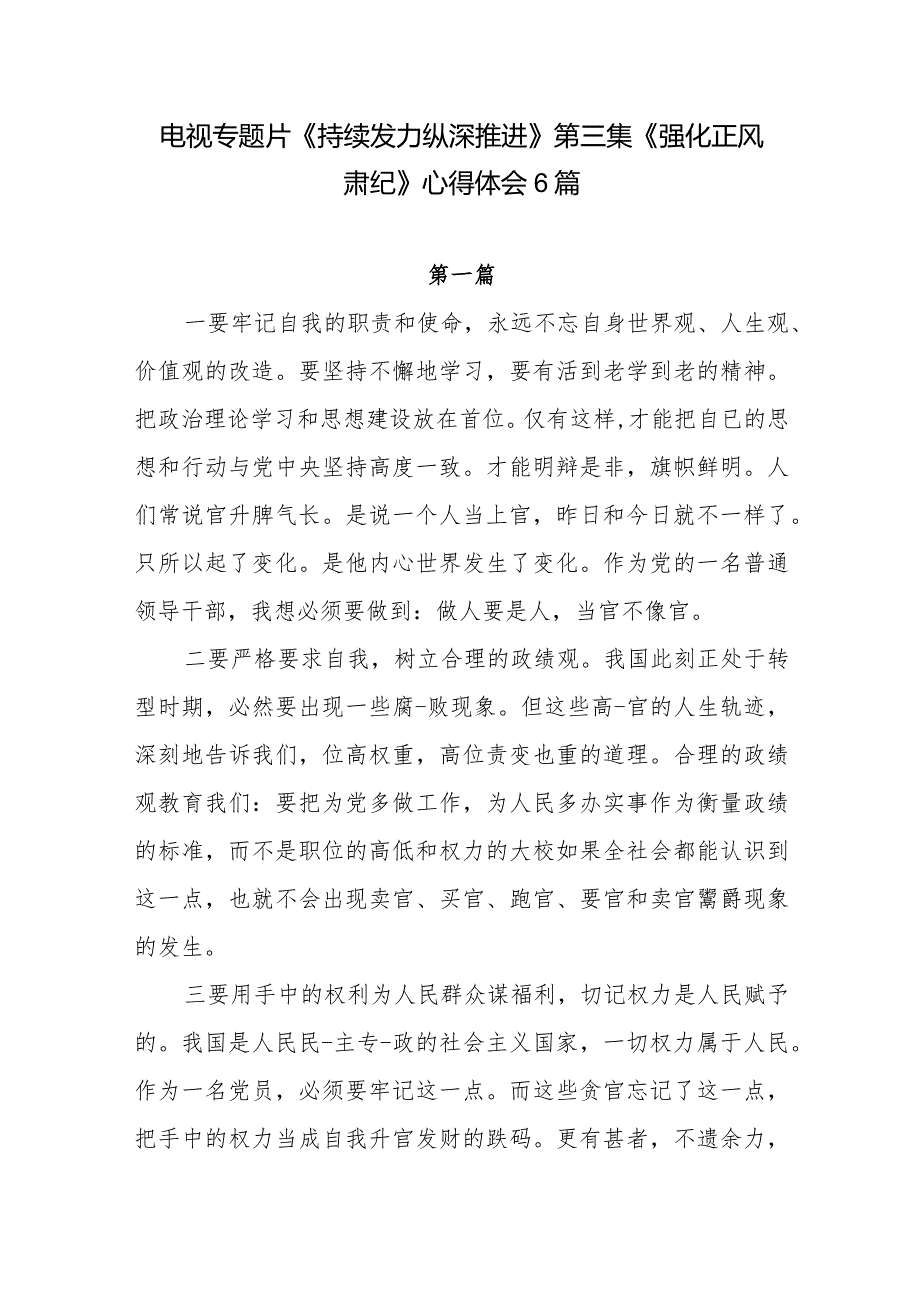 电视专题片《持续发力纵深推进》第三集《强化正风
肃纪》心得体会6篇
第一篇
一要牢记自我的职责和使命，永远不忘自身世界观、人生观、
价值观的改造。要坚持不懈地学习，要有活到老学到老的精神。
把政治理论学习和思想建设放在首位。仅有这样,才能把自已的思
想和行动与党中央坚持高度一致。才能明辩是非，旗帜鲜明。人
们常说官升脾气长。是说一个人当上官，昨日和今日就不一样了。
只所以起了变化。是他内心世界发生了变化。作为党的一名普通
领导干部，我想必须要做到：做人要是人，当官不像官。
二要严格要求自我，树立合理的政绩观。我国此刻正处于转
型时期，必然要出现一些腐-败现象。但这些高-官的人生轨迹，
深刻地告诉我们，位高权重，高位责变也重的道理。合理的政绩
观教育我们：要把为党多做工作，为人民多办实事作为衡量政绩
的标准，而不是职位的高低和权力的大校如果全社会都能认识到
这一点，也就不会出现卖官、买官、跑官、要官和卖官鬻爵现象
的发生。
三要用手中的权利为人民群众谋福利，切记权力是人民赋予
的。我国是人民民-主专-政的社会主义国家，一切权力属于人民。
作为一名党员，必须要牢记这一点。而这些贪官忘记了这一点，
把手中的权力当成自我升官发财的跌码。更有甚者，不遗余力，